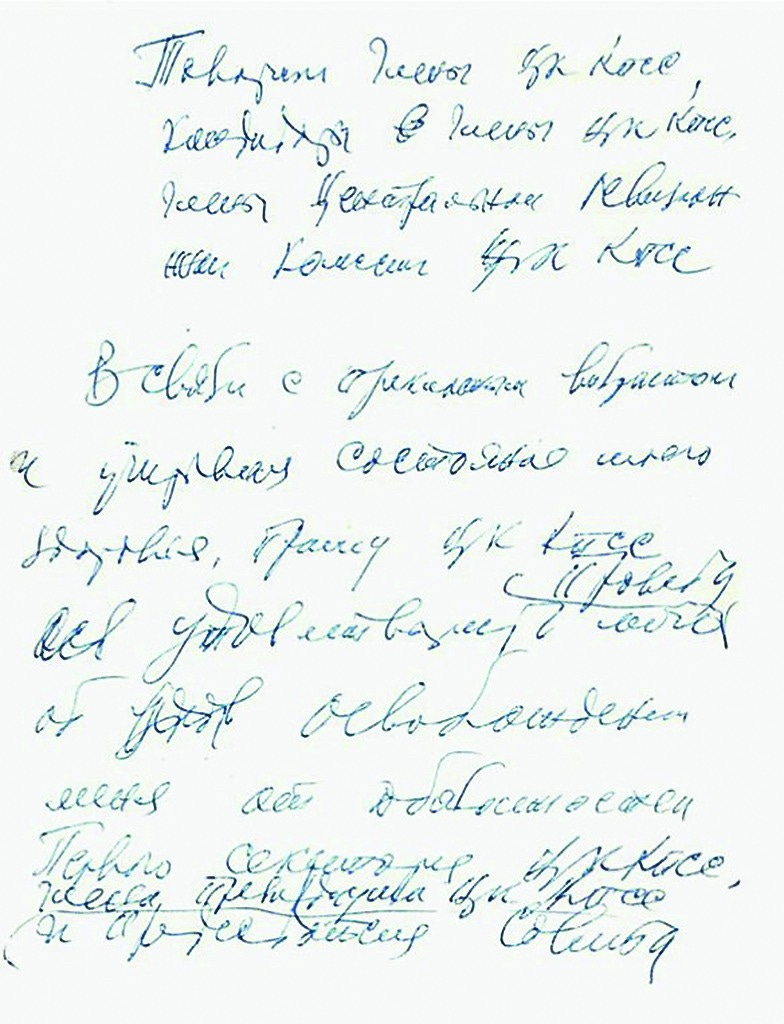 Товарищи члены ЦК КПСС,
Кандидаты в члены ЦК КПСС,
члены Центральной Ревизион
ной Комисии ЦК КПСС
В связи с преклоным возрастом
и учитывая состояние моего
здоровья, прошу ЦК КПСС
просьбу
удовлетворить мою
об освобождении
меня от обязанностей
Первого секретаря ЦК КПСС,
члена Президиума ЦК КПСС
и Председателя Совмина